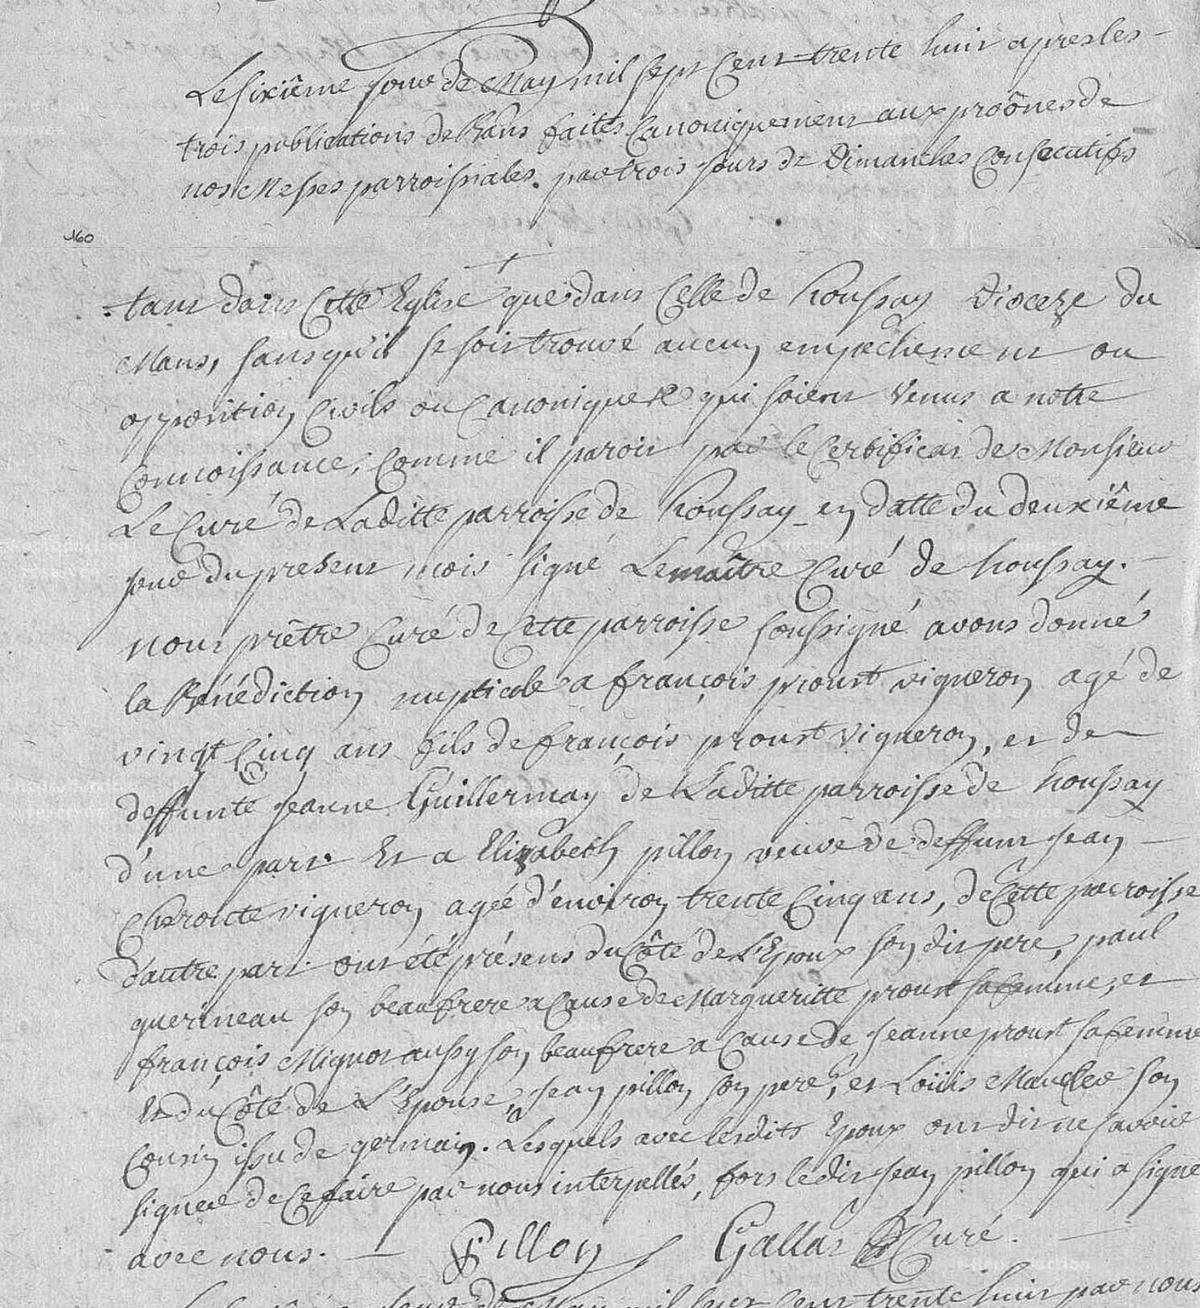 Le sixiême jour de May mil sept cent trente huit apres les
trois publications de Bans faites Canoniquement aux proônes de
nos Messes parroissiales. par trois jours de Dimanches Consecutifs
160
tant dans Cette Eglise que dans Celle de houssay Dioceze du
Mans, sans qu'il se soit trouvé aucun empêchement ou
opposition Civils ou Canoniques qui soient Venus a notre
Connoissance, Comme il paroit par le Certificat de Monsieur
Le Curé de Laditte parroisse de houssay en datte du deuxiême
jour du present mois signé Lemaître Curé de houssay.
nous prêtre Curé de Cette parroisse soussigné avons donné
la Bénédiction nuptiale a françois proust vigneron agé de
vingt Cinq ans fils de françois proust Vigneron, et de
deffunte Jeanne Guillermay de Laditte parroisse de houssay
d'une part Et a Elizabeth pillon veuve de deffunt Jean
Cheronte vigneron agée d'environ trente Cinq ans, de Cette parroisse
d'autre part ont été présens du Côté de L'Epoux son dit pere, paul
querineau son beaufrere a Cause de Margueritte proust sa femme, et
françois Mignot aussy son beaufrere a Cause de Jeanne proust sa femme
Et du Côté de L'Epouse, Jean pillon son pere, et Loüis Mauclere son
Cousin issu de germain. Lesquels avec lesdits Epoux ont dit ne savoir
signer de Ce faire par nous interpellés, fors ledit Jean pillon qui a signé
avec nous. Pillon Gallas Curé.
mil sept cent trente huit par nous